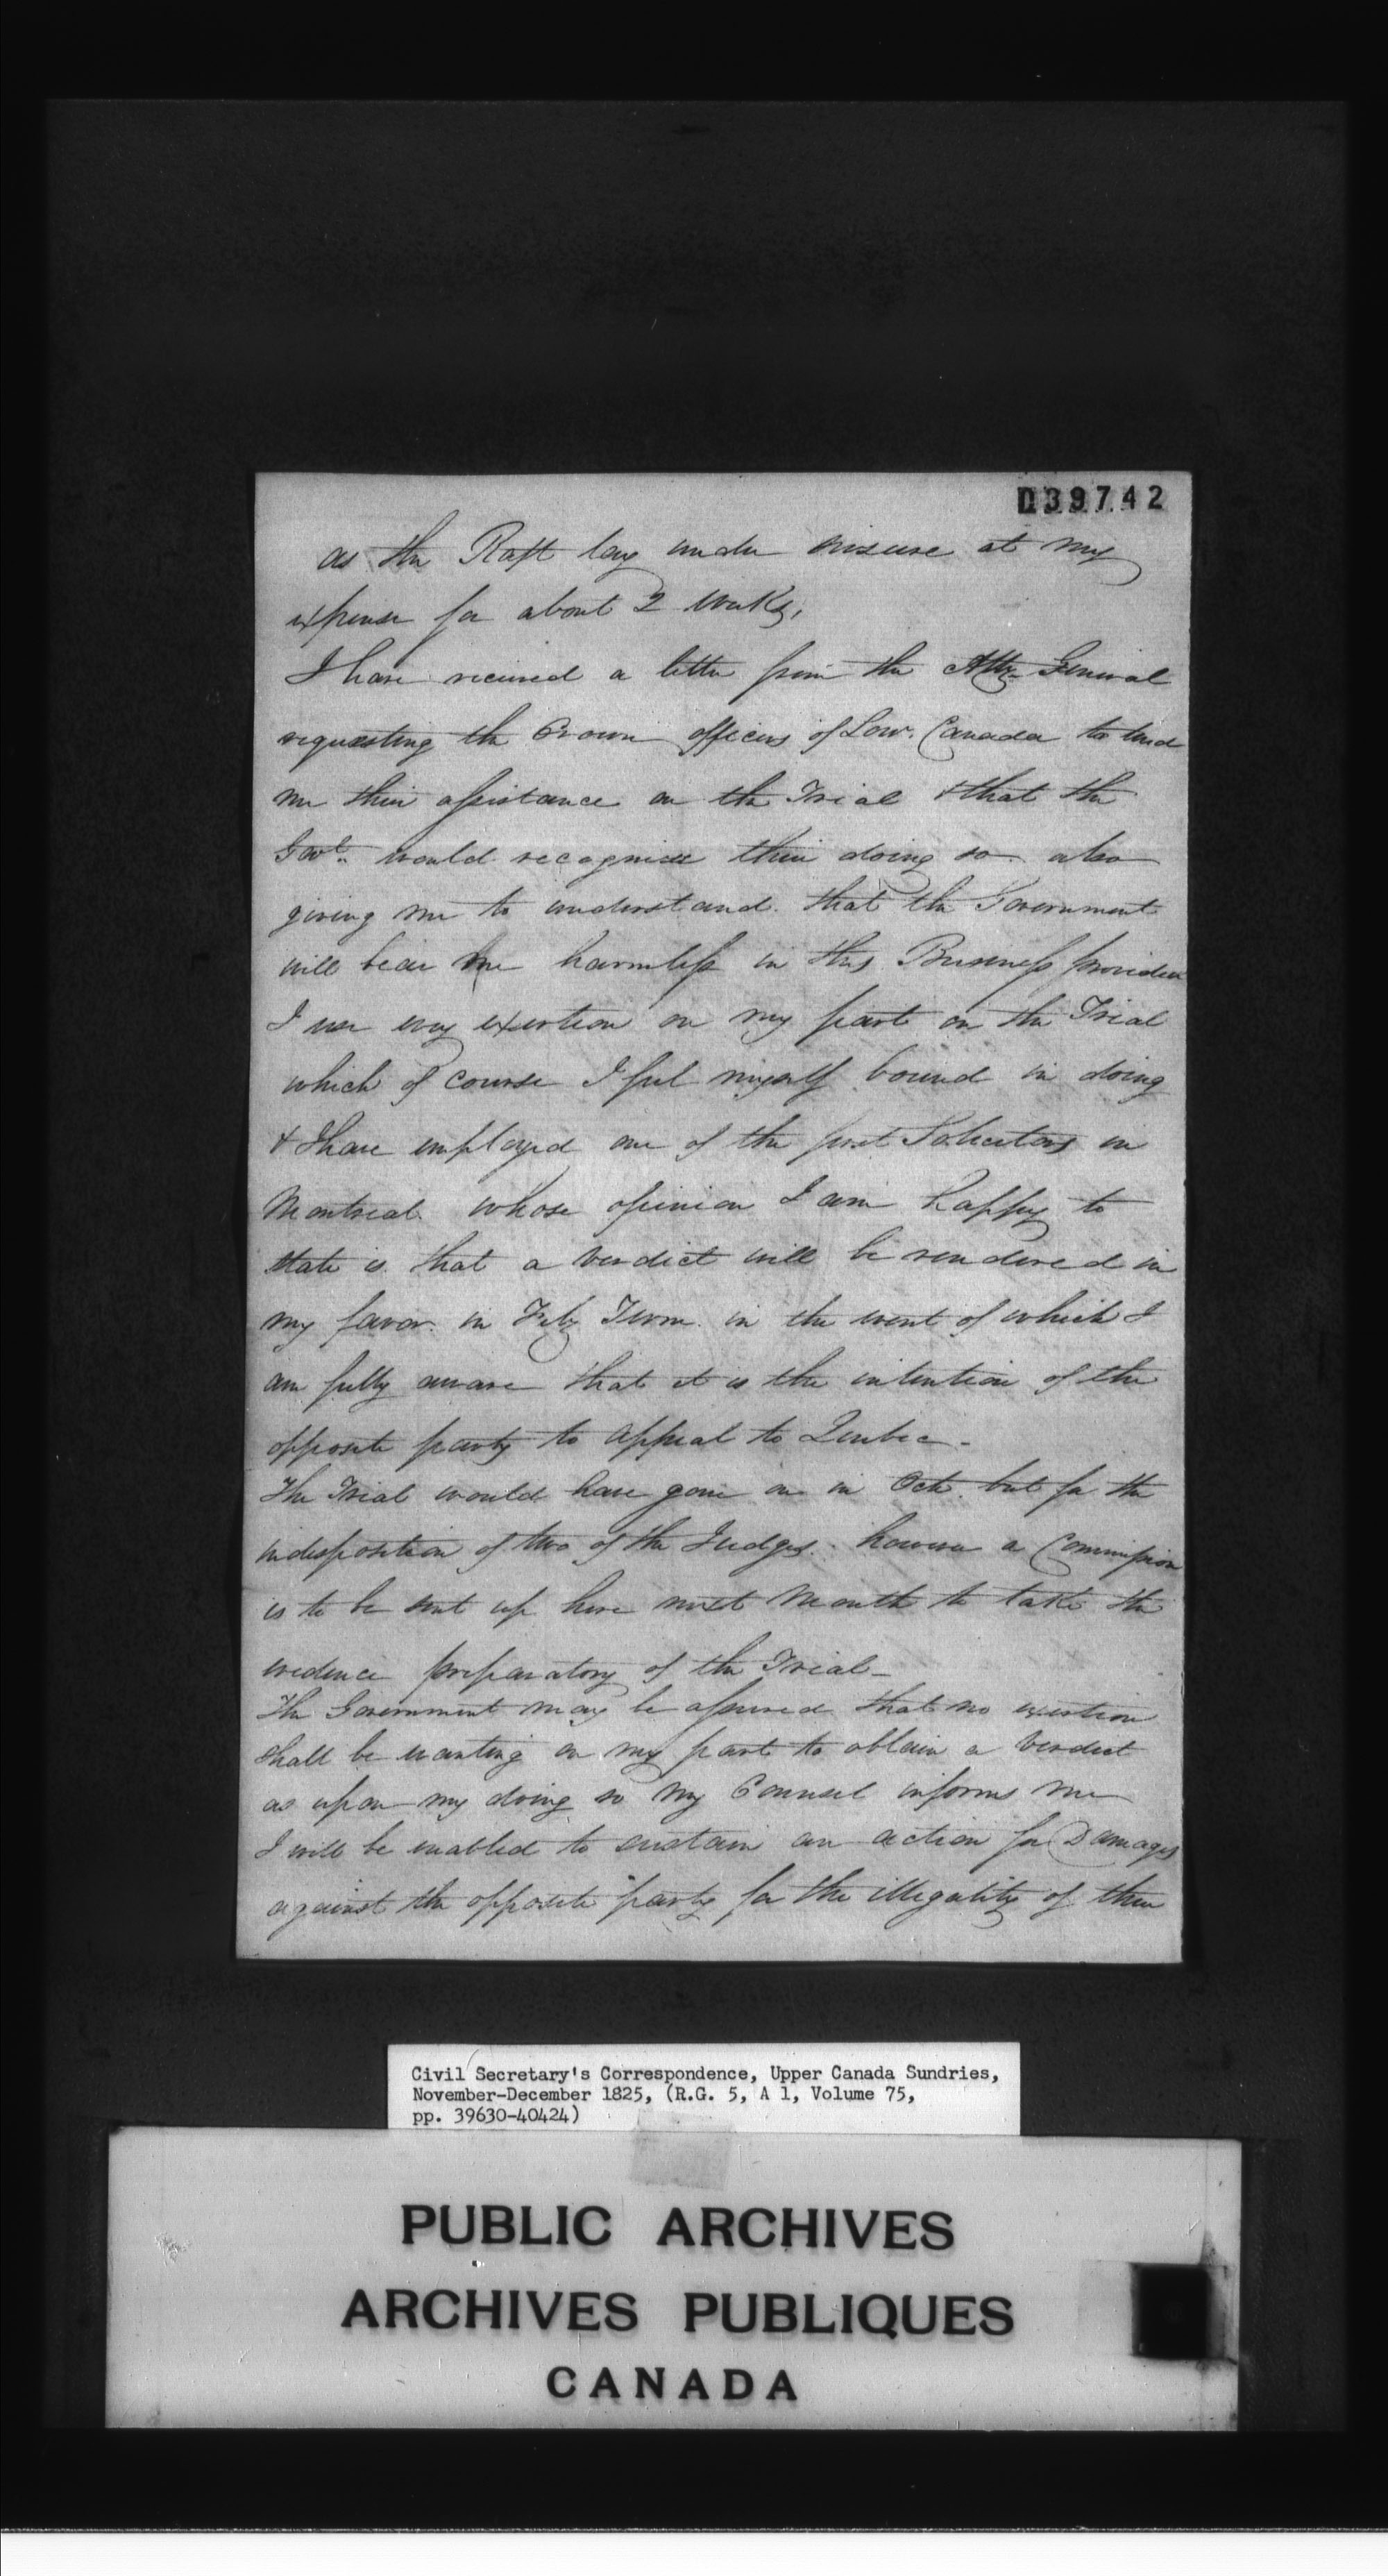 039742
as the Raft lay under seizure at my
expense for about 2 weeks,
I have received a letter from the Atty. General
requesting the Crown officers of Low. Canada to lend
me their assistance on the Trial & that the
Govt. would recognize their doing so also
giving me to understand that the Government
will bear me harmless in this Business provided
I use every exertion on my part on the Trial
which of course I feel myself bound in doing
& I have employed one of the first Solicitors in
Montreal whose opinion I am happy to
state is that a verdict will be rendered in
my favor in Feby Term in the event of which I
am fully aware that it is the intention of the
opposite party to appeal to Quebec -
The Trial would have gone on in Octr. but for the
indisposition of two of the Judges. however a Commission
is to be sent up here next Month to take the
evidence preparatory of the Trial -
The Government may be assured that no exertion
shall be wanting on my part to obtain a verdict
as upon my doing so my Counsel informs me
I will be enabled to sustain an action for Damages
against the opposite party for the illegality of their
Civil Secretary's Correspondence, Upper Canada Sundries,
November-December 1825, (R.G. 5, A 1, Volume 75,
pp. 39630-40424)
PUBLIC ARCHIVES
ARCHIVES PUBLIQUES
CANADA